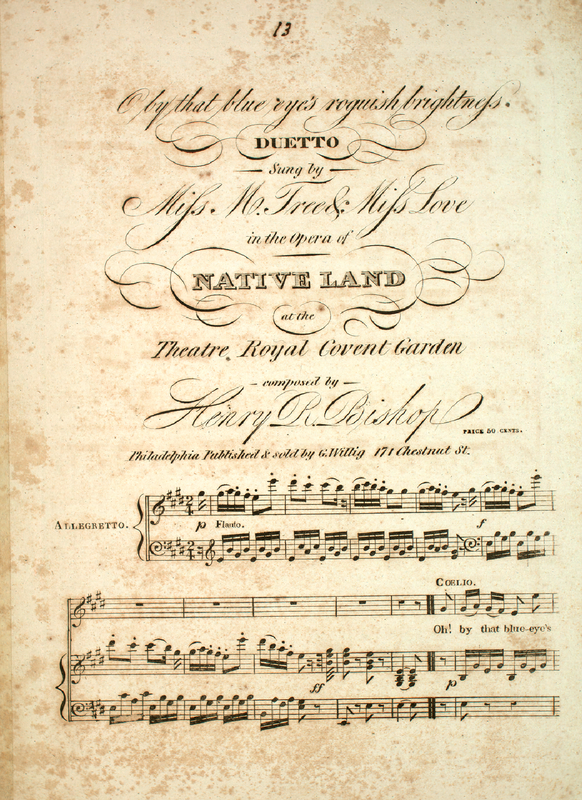 13
O by that blue eye's roguish brightness.
DUETTO
Sung by
Miss. M. Tree & Miss Love
in the Opera of
NATIVE LAND
at the
Theatre Royal Covent Garden
composed by
Henry R. Bishop
PRICE 50 CENTS.
Philadelphia Published & sold by G. Willig 171 Chestnut St.
ALLEGRETTO.
2 4
p Flauto. f
2 4
COELIO.
Oh! by that blue-eye's
ff p